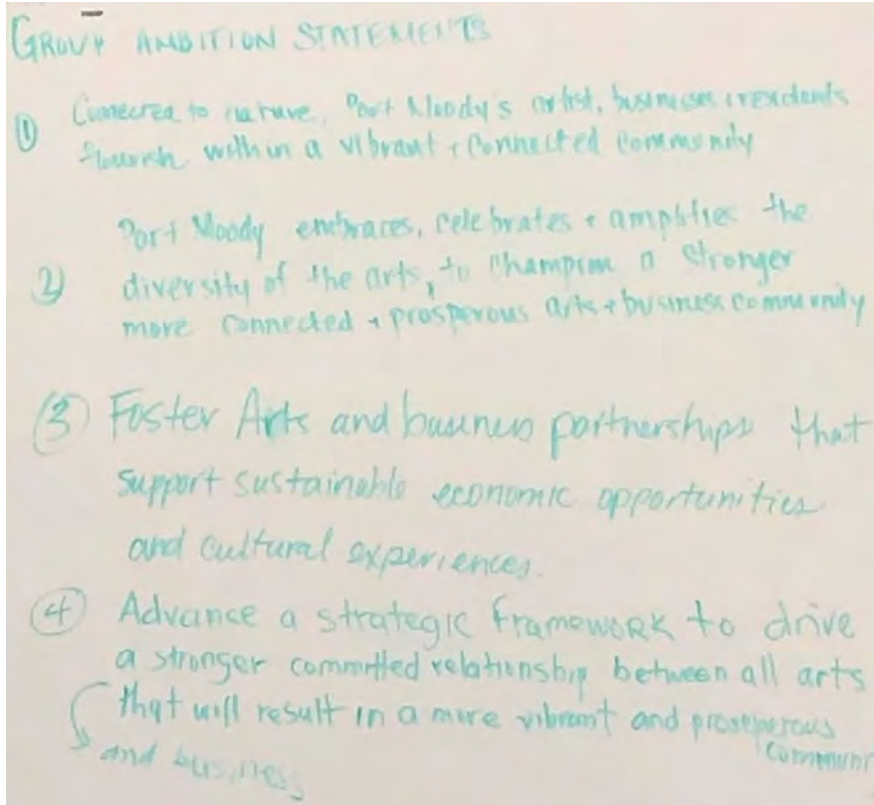 GROUP AMBITION STATEMENTS
① Connected to nature, Port Moody's artist, businesses + residents
flourish within a vibrant + connected community
Port Moody embraces, celebrates + amplifies the
2) diversity of the arts, to champion a stronger
more connected + prosperous arts + business community
③ Foster Arts and business partnerships that
support sustainable economic opportunities
and cultural experiences.
④ Advance a strategic framewoRK to drive
a stronger committed relationship between all arts
that will result in a more vibrant and prosperous
communi
and business